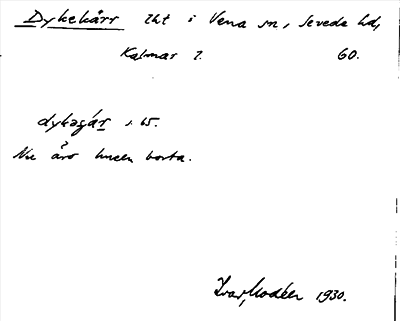 Dykekärr lht i Vena sn, Sevede hd,
Kalmar l. 60.
dykagár
Nu äro husen borta.
Ivar Modéer 1930.